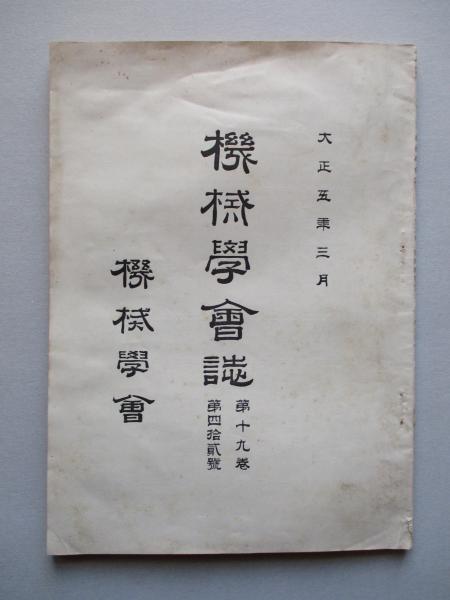 大正五年三月
機械學會誌
第十九卷
第四拾貳號
機械學會